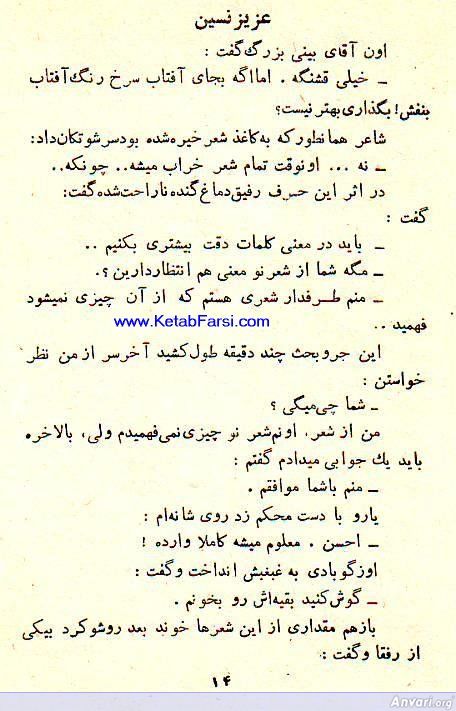 عزیز نسین
اون آقای بینی بزرگ گفت :
ـ خیلی قشنگه . اما اگه بجای آفتاب سرخ رنگ آفتاب
بنفش! بگذاری بهتر نیست؟
شاعر همانطور که به کاغذ شعر خیره شده بود سرشو تکان داد:
ـ نه ... اونوقت تمام شعر خراب میشه.. چونکه..
در اثر این حرف رفیق دماغ گنده ناراحت شده گفت:
گفت :
ـ باید در معنی کلمات دقت بیشتری بکنیم ..
ـ مگه شما از شعر نو معنی هم انتظار دارین ؟.
ـ منم طرفدار شعری هستم که از آن چیزی نمیشود
www.KetabFarsi.com
فهمید ..
این جروبحث چند دقیقه طول کشید آخرسر از من نظر
خواستن :
ـ شما چی میگی ؟
من از شعر، اونم شعر نو چیزی نمی فهمیدم ولی، بالاخره
باید یك جوابی میدادم گفتم :
ـ منم باشما موافقم .
یارو با دست محکم زد روی شانه ام :
ـ احسن . معلوم میشه کاملا وارده !
اوزگو بادی به غبغبش انداخت و گفت :
ـ گوش کنید بقیه اش رو بخونم .
بازهم مقداری از این شعرها خوند بعد روشو کرد بیکی
از رفقا و گفت :
۱۴
Anvari.org